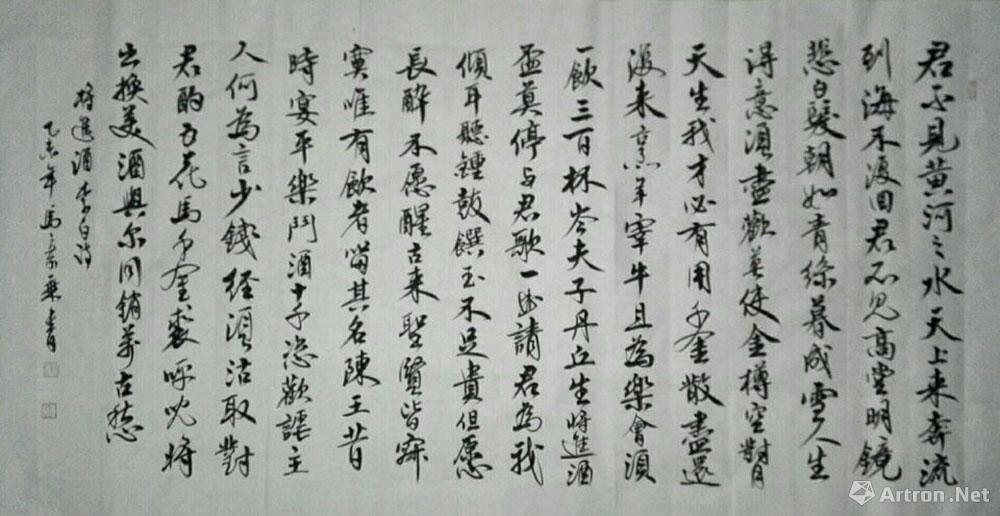 君不見黄河之水天上来奔流
到海不復回君不見高堂明鏡
悲白髮朝如青絲暮成雪人生
得意須盡歡莫使金樽空對月
天生我才必有用千金散盡還
復来烹羊宰牛且為樂會須
一飲三百杯岑夫子丹丘生將進酒
盃莫停与君歌一曲請君為我
傾耳聽鍾鼓饌玉不足貴但愿
長醉不愿醒古来聖賢皆寂
寞唯有飲者留其名陳王昔
時宴平樂鬥酒十千恣歡謔主
人何為言少錢經須沽取對
君酌五花馬千金裘呼兒將
出換美酒與尔同銷萬古愁
將進酒李白詩
年馬書
Artron.Net